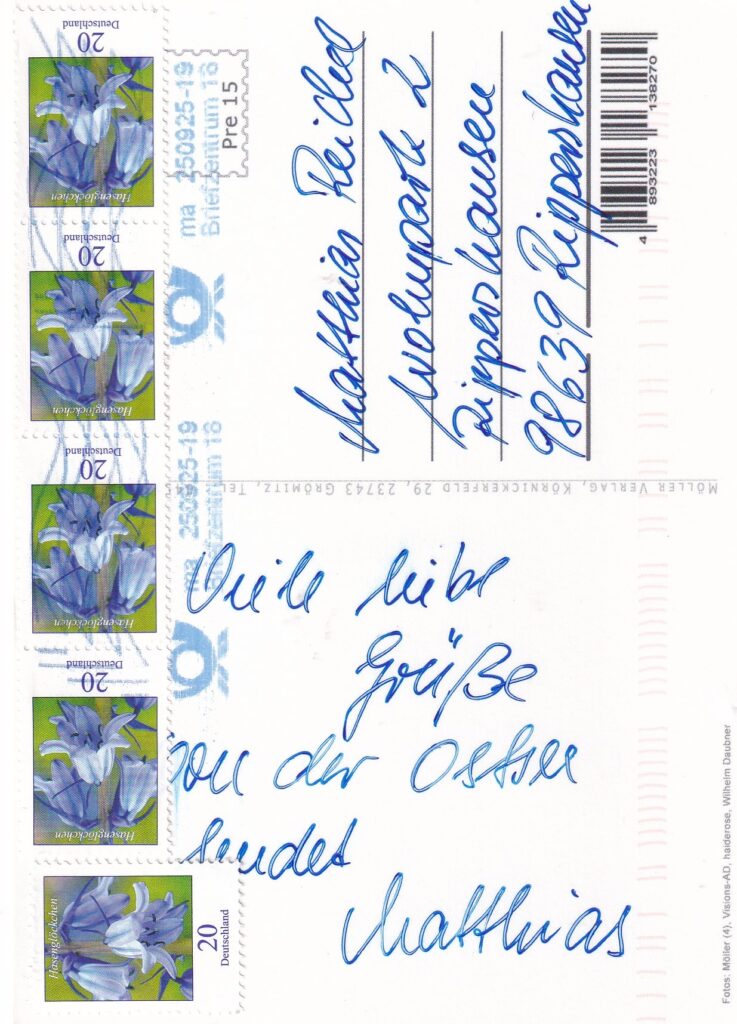 Viele liebe
Grüße
von der Ostsee
sendet
Matthias
Matthias Reichel
Wohnpark 2
Rippershausen
98639 Rippershausen
Deutschland
20
Hasenglöckchen
Deutschland
20
Hasenglöckchen
Deutschland
20
Hasenglöckchen
Deutschland
20
Hasenglöckchen
Hasenglöckchen
20
Deutschland
ma 250925-19
Briefzentrum 18
ma 250925-19
Briefzentrum 18
Pre 15
4 893223 138270
MÖLLER VERLAG, KÖRNICKERFELD 29, 23743 GRÖMITZ, TEL
Fotos: Möller (4), Visions-AD, haiderose, Wilhelm Daubner